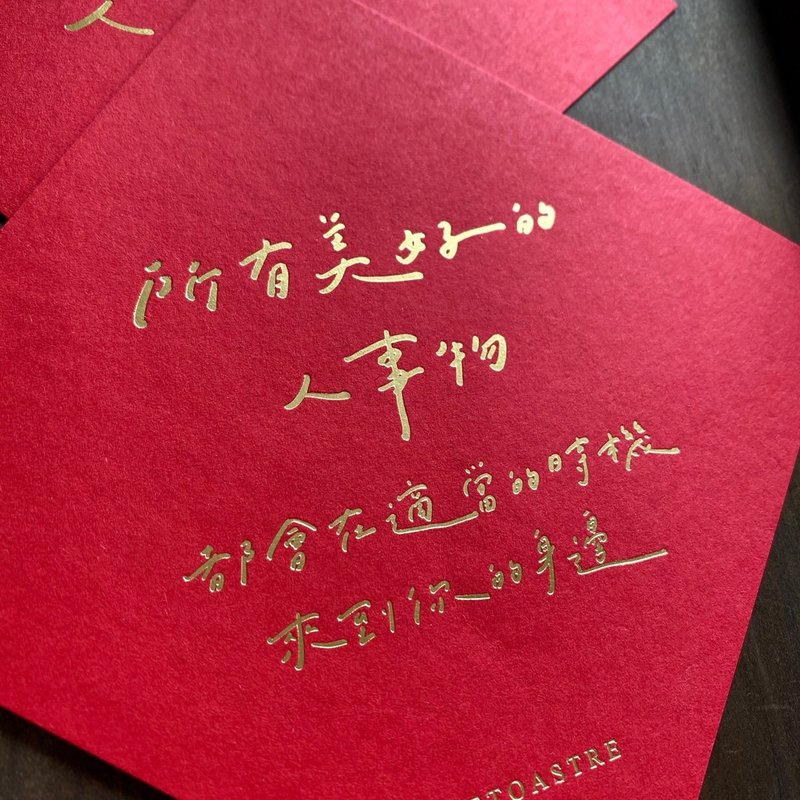 人
所有美好的
人事物
都會在適當的時機
來到你的身邊
TOASTRE